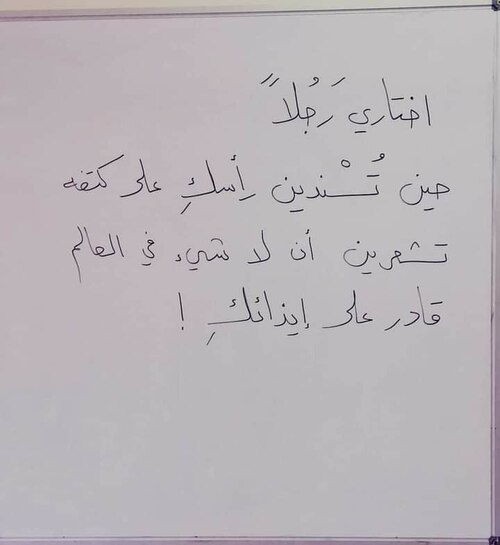 اختاري رَجُلاً
حين تُسْندين رأسكِ على كتفه
تشعرين أن لا شيء في العالم
قادر على إيذائكِ !